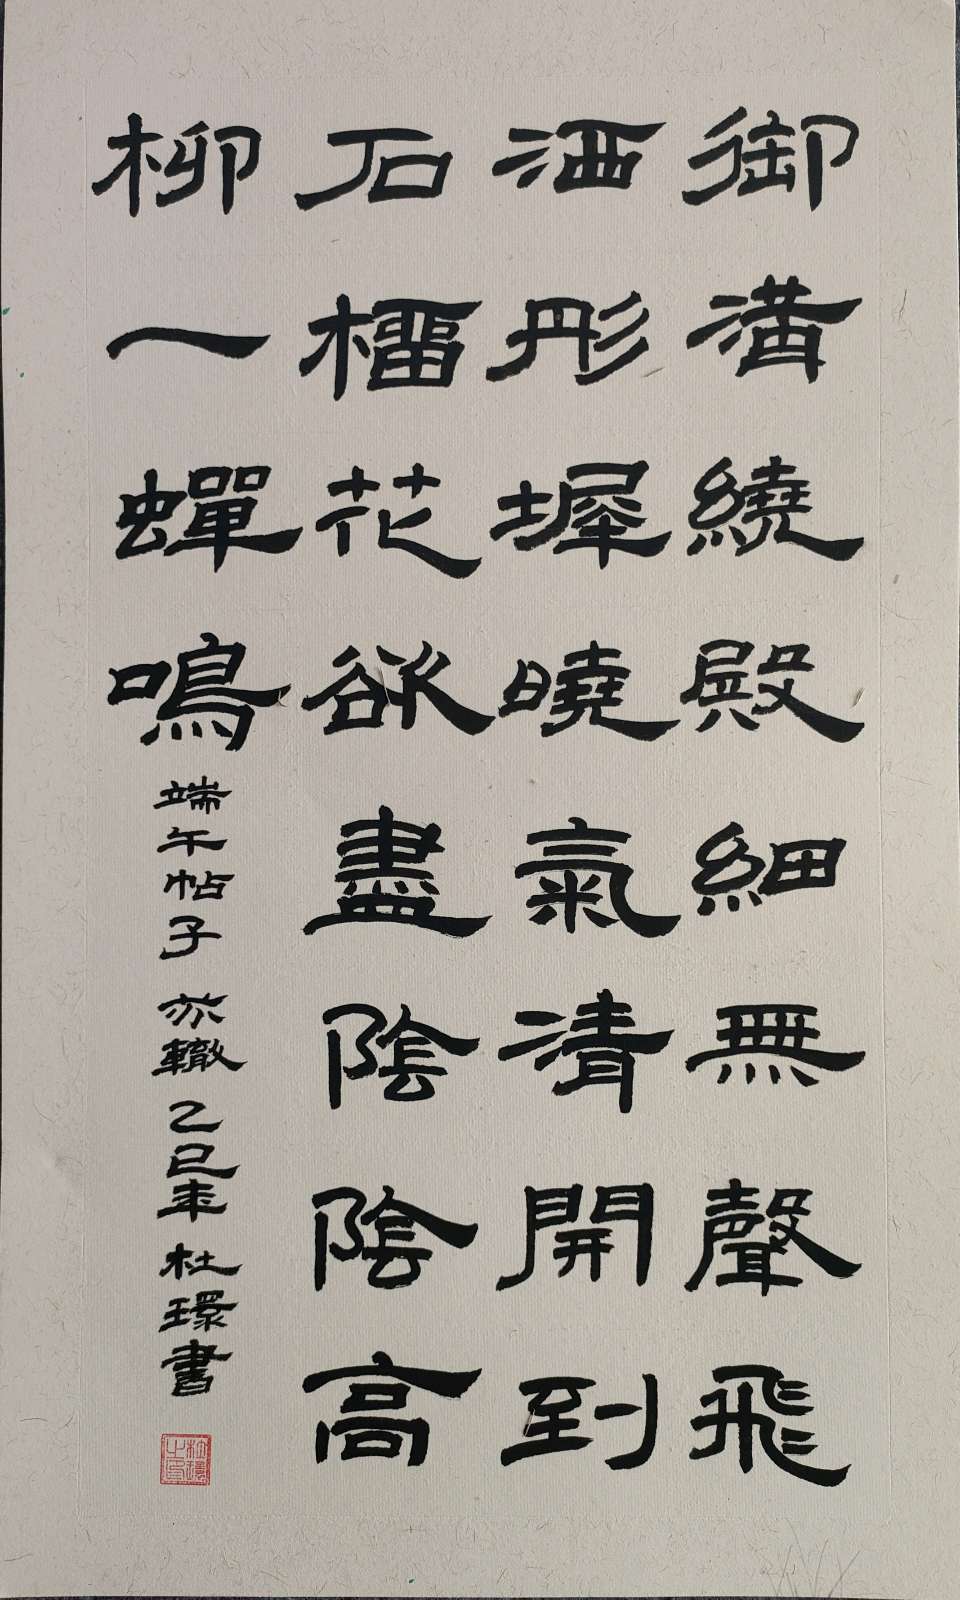 御溝繞殿細無聲飛
洒彤墀曉氣清開到
石榴花欲盡陰陰高
柳一蟬鳴
端午帖子 苏轍 乙巳年 杜環書
杜環之印